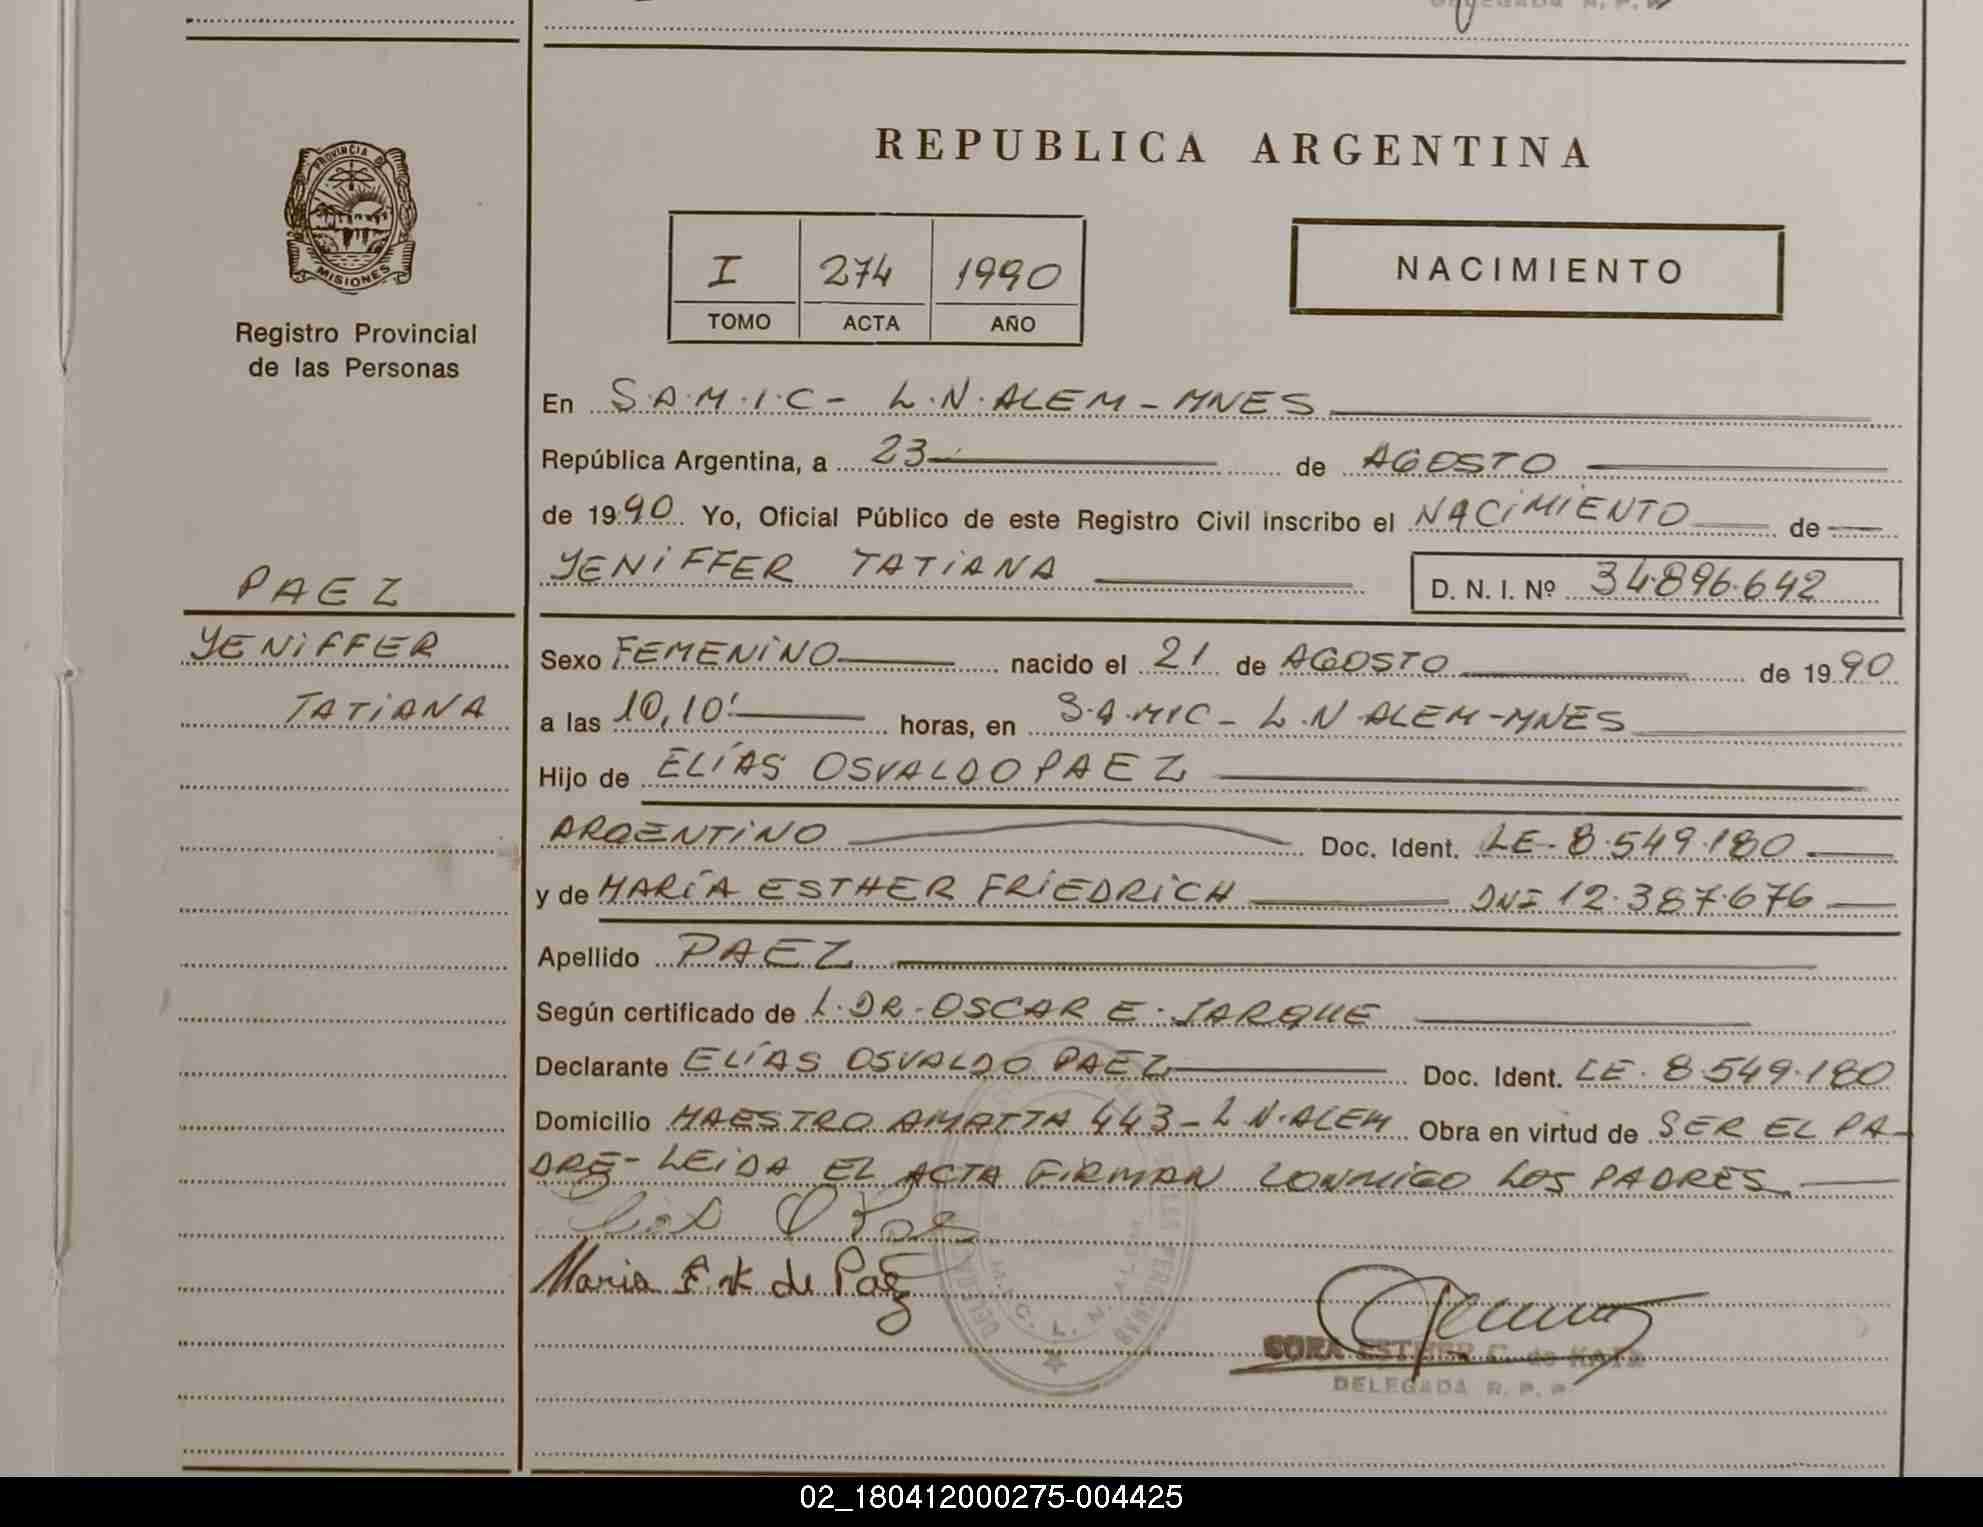 DELEGADA R. P. P.
REPUBLICA ARGENTINA
PROVINCIA DE
MISIONES
Registro Provincial
de las Personas
I 274 1990
TOMO ACTA AÑO
NACIMIENTO
En S.A.M.I.C - L.N.ALEM - MNES
República Argentina, a 23 de AGOSTO
de 1990 Yo, Oficial Público de este Registro Civil inscribo el NACIMIENTO de
YENIFFER TATIANA D. N. I. Nº 34.896.642
PAEZ
YENIFFER
TATIANA
Sexo FEMENINO nacido el 21 de AGOSTO de 1990
a las 10,10' horas, en S.A.MIC - L.N ALEM - MNES
Hijo de ELÍAS OSVALDO PAEZ
ARGENTINO Doc. Ident. LE - 8.549.180
y de MARÍA ESTHER FRIEDRICH DNI 12.387.676
Apellido PAEZ
Según certificado de L. DR. OSCAR E. JARQUE
Declarante ELÍAS OSVALDO PAEZ Doc. Ident. LE. 8.549.180
Domicilio MAESTRO AMATTA 443 - L N.ALEM Obra en virtud de SER EL PA-
DRE - LEIDA EL ACTA FIRMAN CONMIGO LOS PADRES
Maria de Paez
ESTHER C. de
DELEGADA R. P. P.
02_180412000275-004425